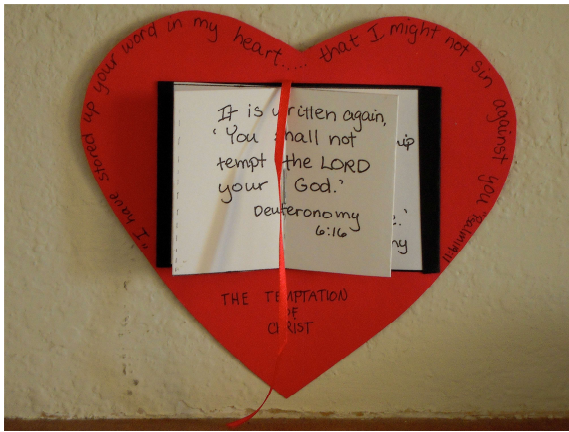 "I have stored up your word in my heart..... that I might not sin against you"
It is written again,
'You shall not
tempt the LORD
your God.'
Deuteronomy
6:16
THE TEMPTATION
OF
CHRIST